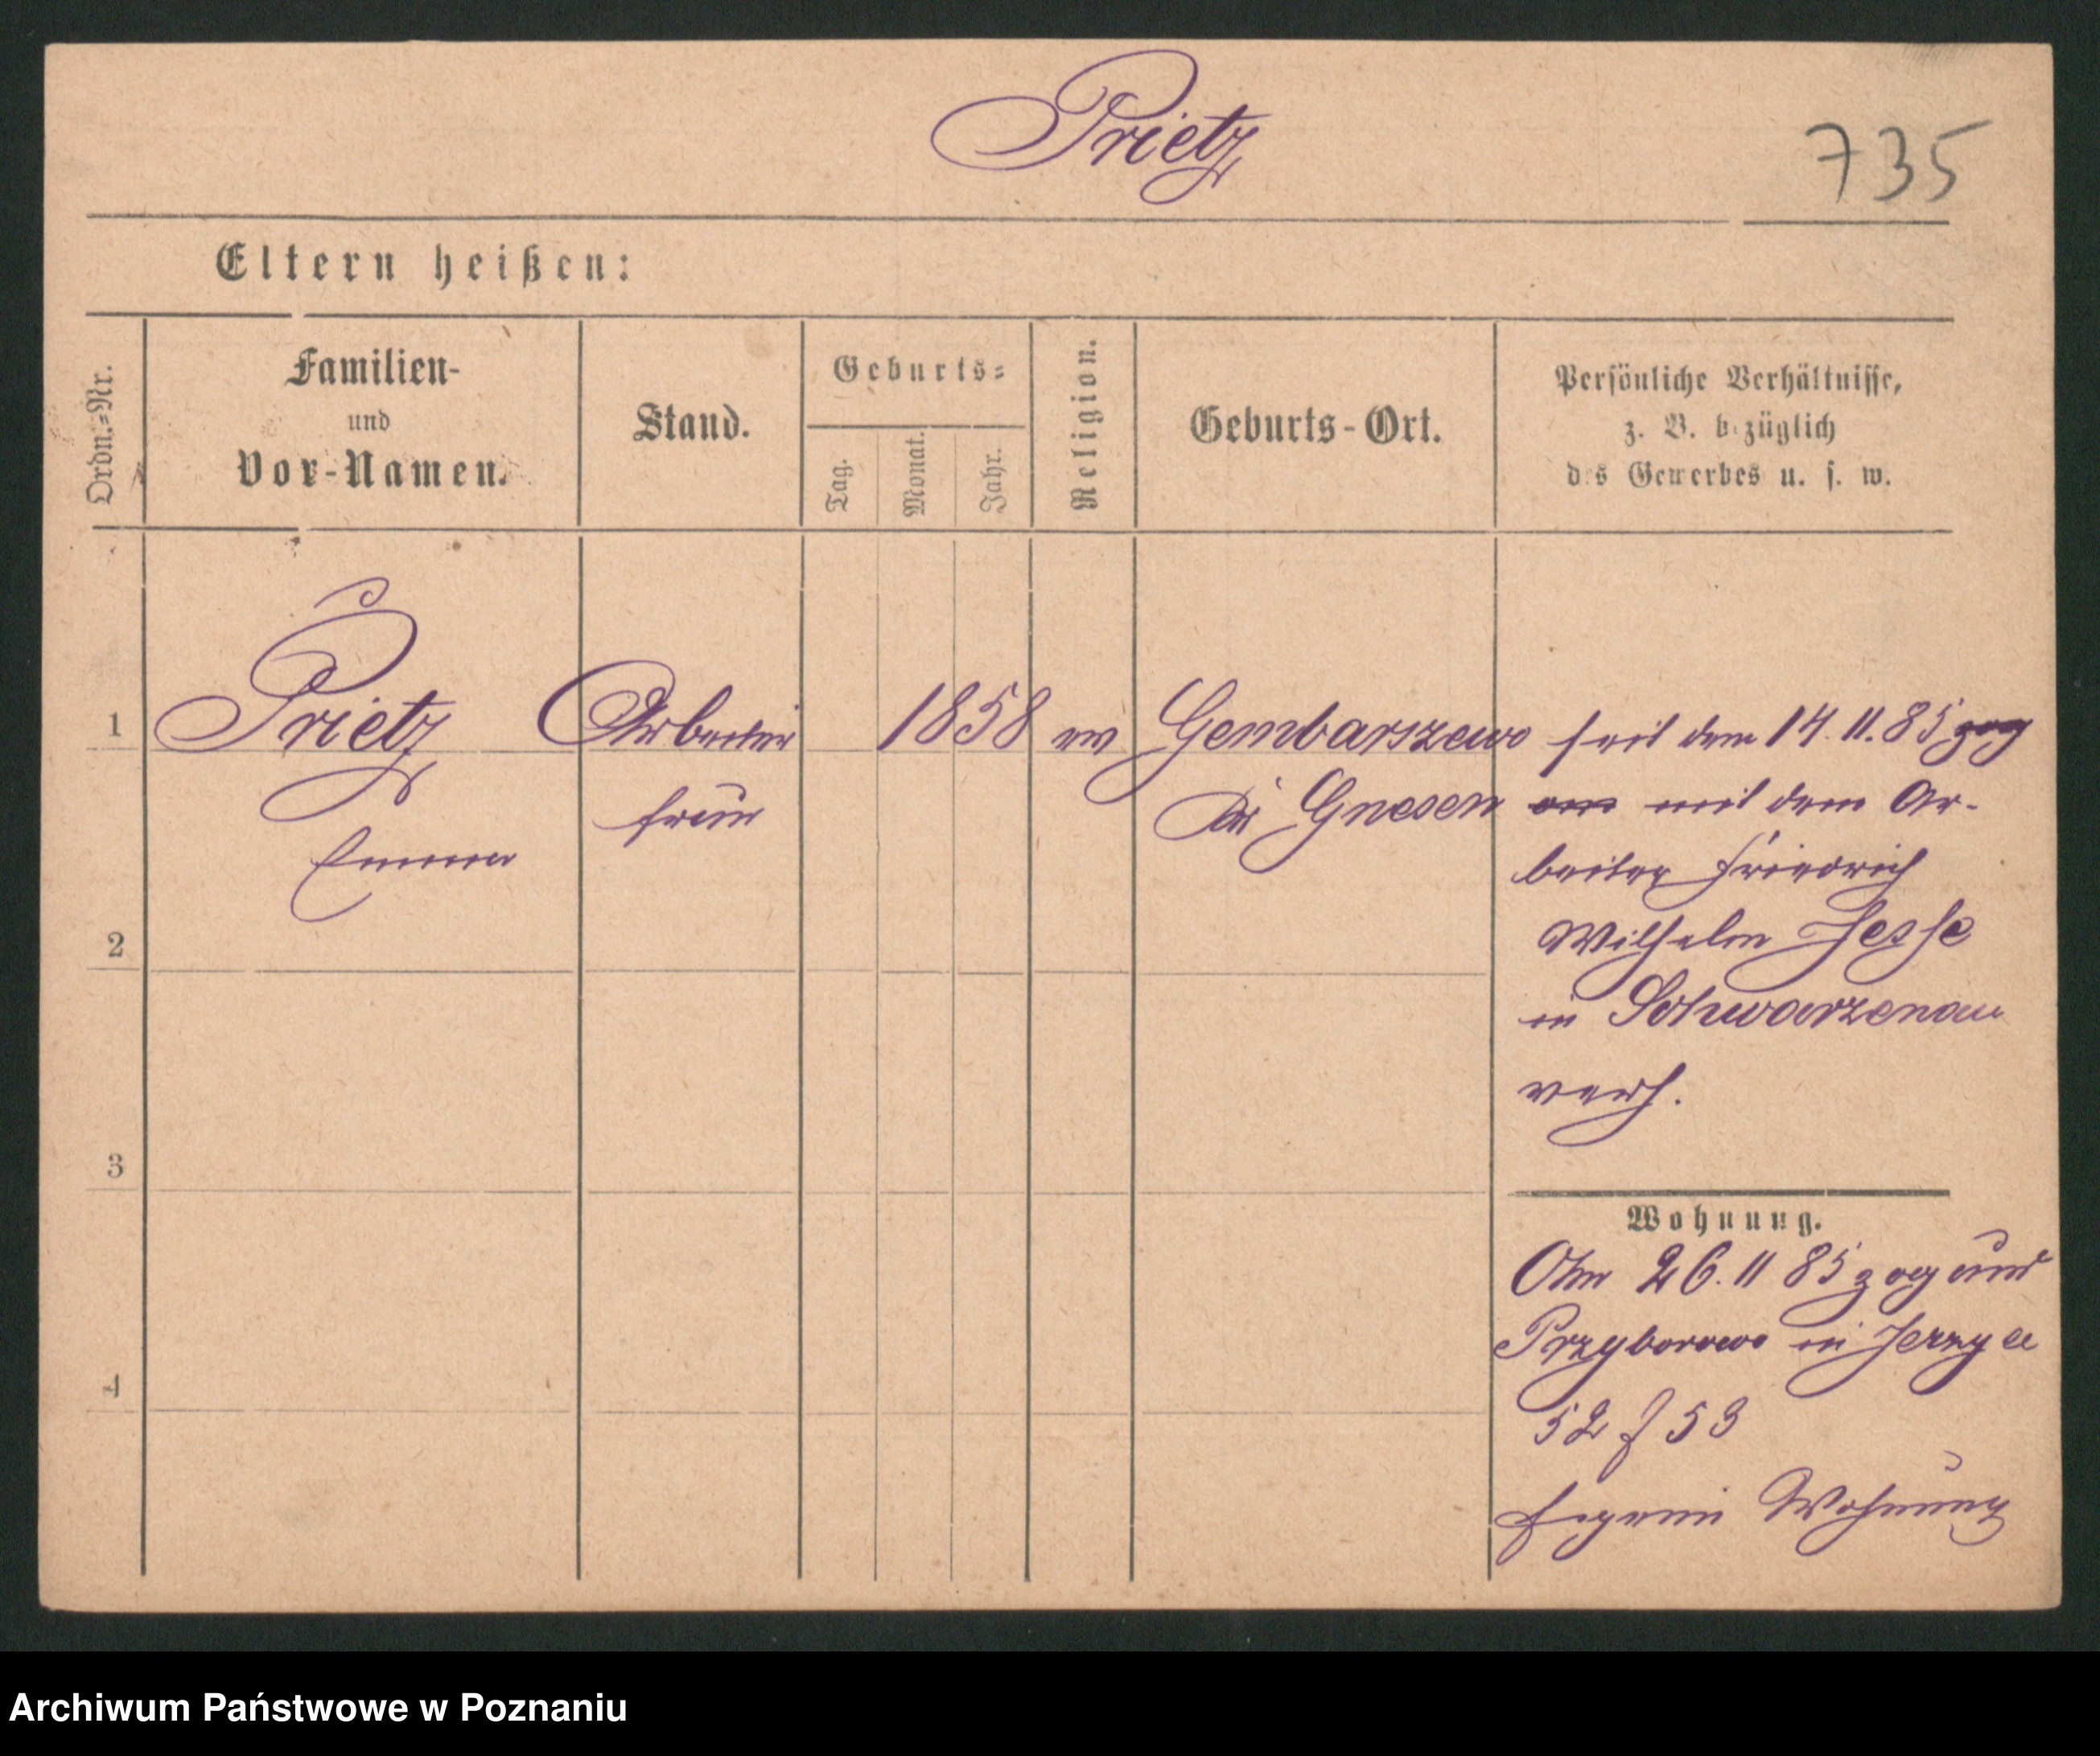 Prietz
735
Eltern heißen:
Ordn.-Nr.
Familien-
und
Vor-Namen.
Stand.
Geburts-
Tag.
Monat.
Jahr.
Religion.
Geburts-Ort.
Persönliche Verhältnisse,
z. B. bezüglich
des Gewerbes u. s. w.
1 Prietz Arbeiter 1858 ev Gembarszewo seit dem 14. 11. 85 zog
Emma frau Kr Gnesen am mit dem Ar-
beiter Friedrich
2 Wilhelm Jesse
in Schwarzenau
verh.
3
Wohnung.
Am 26. 11 85 zog aus
Przyborowo in Jerzyce
4
52 / 53
Wohnung
Archiwum Państwowe w Poznaniu